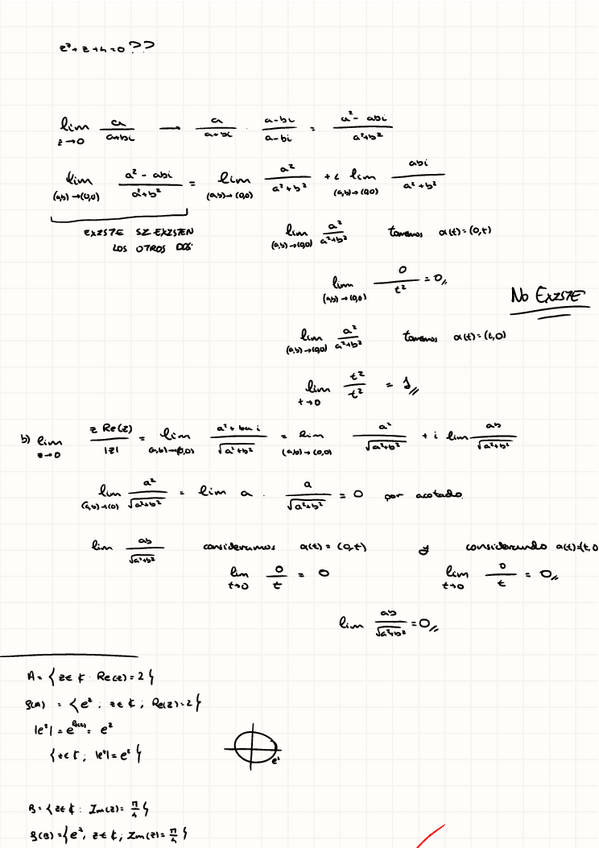 z² + z + 1 = 0 ??
lim z→0 a/(a+bi) → a/(a+bi) · (a-bi)/(a-bi) = (a² - abi)/(a²+b²)
lim (a,b)→(0,0) (a² - abi)/(a²+b²) = lim (a,b)→(0,0) a²/(a²+b²) + i lim (a,b)→(0,0) abi/(a²+b²)
EXISTE SI EXISTEN
LOS OTROS DOS
lim (a,b)→(0,0) a²/(a²+b²) tomamos α(t)=(0,t)
lim (a,b)→(0,0) 0/t² = 0,,
No EXISTE
lim (a,b)→(0,0) a²/(a²+b²) tomamos α(t)=(t,0)
lim t→0 t²/t² = 1,,
b) lim z→0 z Re(z)/|z| = lim (a,b)→(0,0) (a²+ba i)/√(a²+b²) = lim (a,b)→(0,0) a²/√(a²+b²) + i lim ab/√(a²+b²)
lim (a,b)→(0,0) a²/√(a²+b²) = lim a · a/√(a²+b²) = 0 por acotado.
lim ab/√(a²+b²) consideramos α(t)=(0,t) y considerando α(t)=(t,0
lim t→0 0/t = 0 lim t→0 0/t = 0,,
lim ab/√(a²+b²) = 0,,
A = {z ∈ ℂ : Re(z) = 2}
f(A) = {e^z : z ∈ ℂ, Re(z)=2}
|e^z| = e^Re(z) = e²
{z ∈ ℂ, |e^z| = e²}
e²
B = {z ∈ ℂ : Im(z) = π/4}
f(B) = {e^z, z ∈ ℂ, Im(z) = π/4}